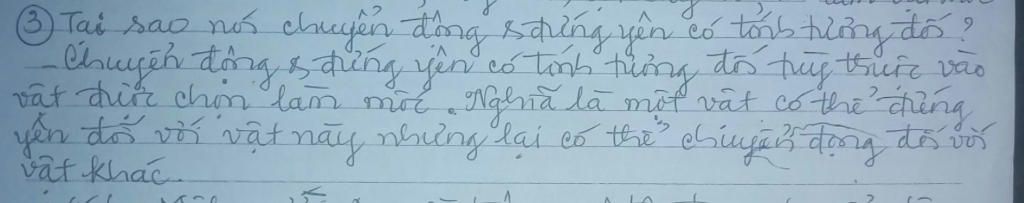 ③ Tại sao nói chuyển động & đứng yên có tính tương đối?
- Chuyển động & đứng yên có tính tương đối tuỳ thuộc vào
vật được chọn làm mốc. Nghĩa là một vật có thể đứng
yên đối với vật này nhưng lại có thể chuyển động đối với
vật khác.